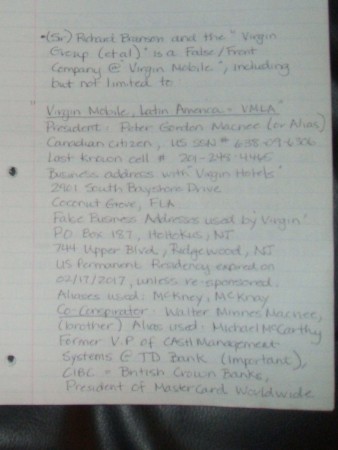 •(Sir) Richard Branson and the "Virgin
Group (et al)" is a False/Front
Company @ "Virgin Mobile", including
but not limited to:
"Virgin Mobile, Latin America - VMLA"
President: Peter Gordon Macnee (or Alias)
Canadian citizen, US SSN # [redacted]
Last known cell # [redacted]
Business address with "Virgin Hotels"
2901 South Bayshore Drive
Coconut Grove, FLA.
False Business Addresses used by "Virgin"
P.O. Box 187, HoHoKus, NJ
744 Upper Blvd, Ridgewood, NJ
US Permanent Residency expired on
02/17/2017, unless re-sponsored.
Aliases used: McKney, McKnay
Co-Conspirator - Walter Minnes Macnee,
(brother) Alias used - Michael McCarthy
Former V.P. of CASH Management
Systems @ TD Bank (important),
CIBC - British Crown Banks,
President of Mastercard Worldwide